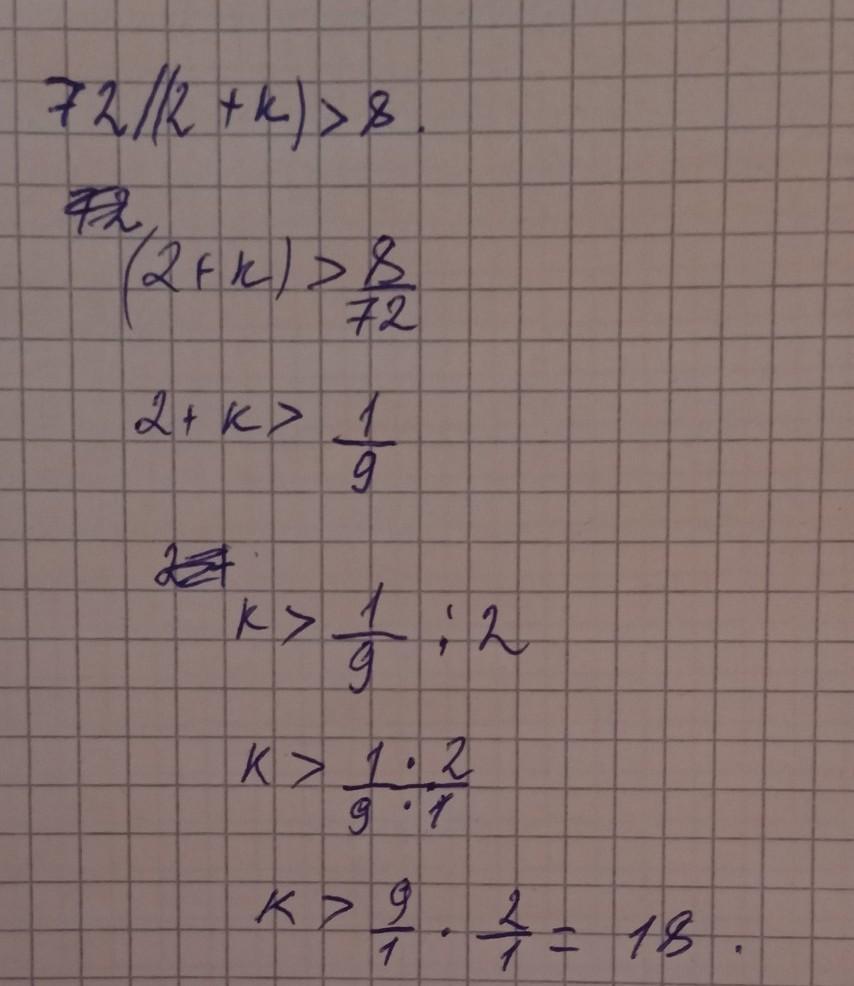 72/(2+k)>8.
72
(2+k)>8/72
2+k>1/9
2+
k>1/9:2
k>1·2/9·1
k>9/1·2/1=18.